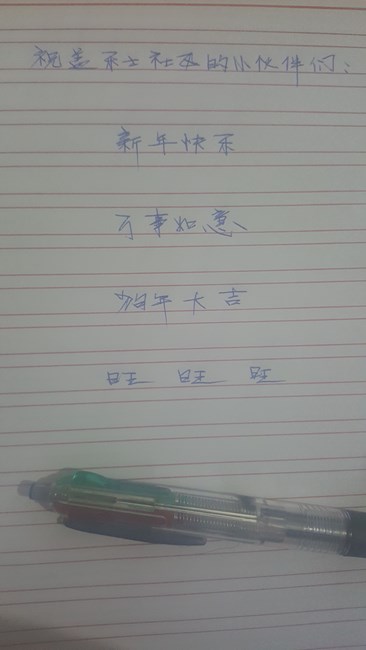 祝盖乐士社区的小伙伴们:
新年快乐
万事如意
狗年大吉
旺 旺 旺